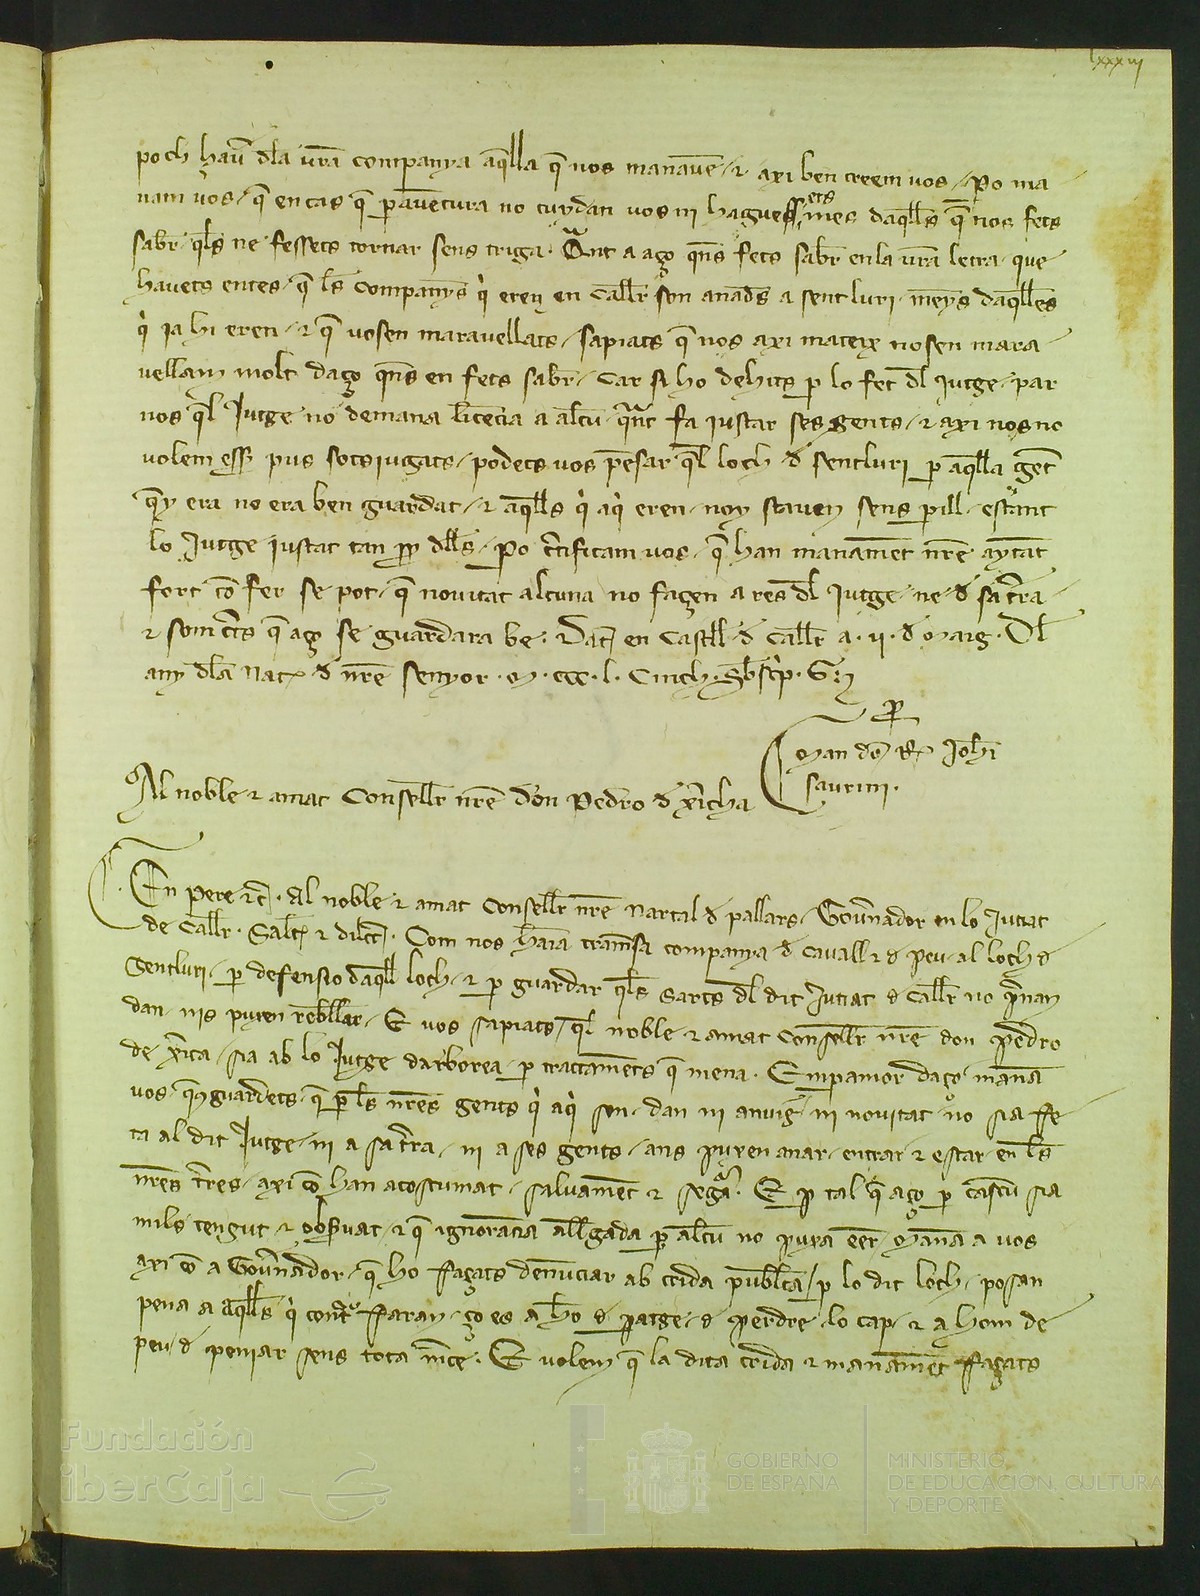 lxxxiij
poch havr̄ dla vrā companya aq̄lla q̄ nos manavē · ⁊ axi ben creem vos · Po ma
nam vos · q̄ en cas q̄ p avētura no cuydan vos ni haguessets mes daq̄lls q̄ nos fets
sabr̄ · q̄ls ne fessets tornar sens triga · Qnt a aço qn̄s fets sabr̄ en la vrā letra · que
havets entes · q̄ ls̄ companys q̇ eren en Callr̄ son anads a sent luri · meys daq̄lles
q̇ ia hi eren · ⁊ q̄ vosen maravellats · sapiats q̄ nos axi mateix nosen mara
vellam molt daço qn̄s en fets sabr̄ · car si ho dehits p lo fet dl Jutge · par
nos q̄l Jutge no demana licēcia a alcū · qnt fa iustar ses gents · ⁊ axi nos no
volem ess̄ pus sotsiugats · podets vos pēsar q̄l loch đ sentluri p aq̄lla gēt
q̄y era no era ben guardat · ⁊ aq̄lls q̇ aq̇ eren · noy staven sens pill · estant
lo Jutge iustat tan pp dlls · Po c̄tificam vos · q̄ han manamēt nrē aytāt
fort cō fer se pot · q̄ novitat alcuna no façen a res dl Jutge · ne đ sa tr̄ra ·
⁊ som c̄ts q̄ aço se guardara be · Dat̄ en Castll đ Callr̄ a · ij · đ març · Dl
any dla Nat̄ đ nrē senyor · M · ccc · l · Cinch · Sb̄scp̄ · G
p
Man dn̄j R̄ Joh̄
saurini ·
Al noble ⁊ amat Consellr̄ nrē don Pedro đ xicha
En Pere ⁊c̄ · Al noble ⁊ amat Consellr̄ nrē Nartal đ pallars · Gov̄nador en lo Jutiat
de Callr̄ · Salt̄ ⁊ dilcc̄ · Com nos haiā tramēsa companya đ cavall ⁊ đ peu · al loch đ
Sentluri · p defensio daq̄ll loch · ⁊ p guardar q̄ls Sarts dl dit Jutiat đ Callr̄ no prenan
dan · nis puxen rebellar · E vos sapiats · q̄l noble ⁊ amat Consellr̄ nrē don Pedro
de xīca · sia ab lo Jutge darborea · p tractamēts q̄ mena · Emperamor daço manā
vos · q̄ guardets · q̄ p ls̄ nrēs gents q̇ aq̇ son · dan ni anuig · ni novitat · no sia ffe
ta al dit Jutge · ni a sa tr̄ra · ni a ses gents · ans puxen anar · entrar ⁊ estar · en ls̄
nrēs tr̄res · axi cō han acostumat · salvamēt ⁊ segā · E p tal q̄ aço p cascū sia
mils tengut ⁊ obs̄vat · ⁊ q̄ ignorācia allegada p alcū no puxa eēr · Manā a vos
axi cō a Gov̄nador · q̄ ho ffaçats denūciar ab crida publica p lo dit loch · posan
pena a aq̄lls q̇ contra ffaran · ço es a hō đ paratge · đ perdre lo cap · ⁊ a hom de
peu · đ peniar sens tota m̄ce · E volem q̄ la dita crida ⁊ manamēt ffaçats
Fundación
iberCaja
GOBIERNO
DE ESPAÑA
MINISTERIO
DE EDUCACIÓN, CULTURA
Y DEPORTE